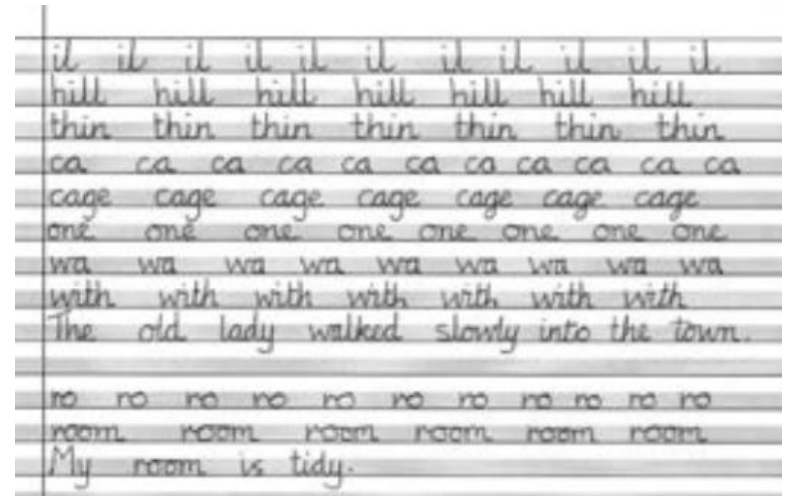 il il il il il il il il il il il
hill hill hill hill hill hill hill
thin thin thin thin thin thin thin
ca ca ca ca ca ca ca ca ca ca ca
cage cage cage cage cage cage cage
one one one one one one one one
wa wa wa wa wa wa wa wa wa
with with with with with with with
The old lady walked slowly into the town.
ro ro ro ro ro ro ro ro ro ro ro
room room room room room room
My room is tidy.